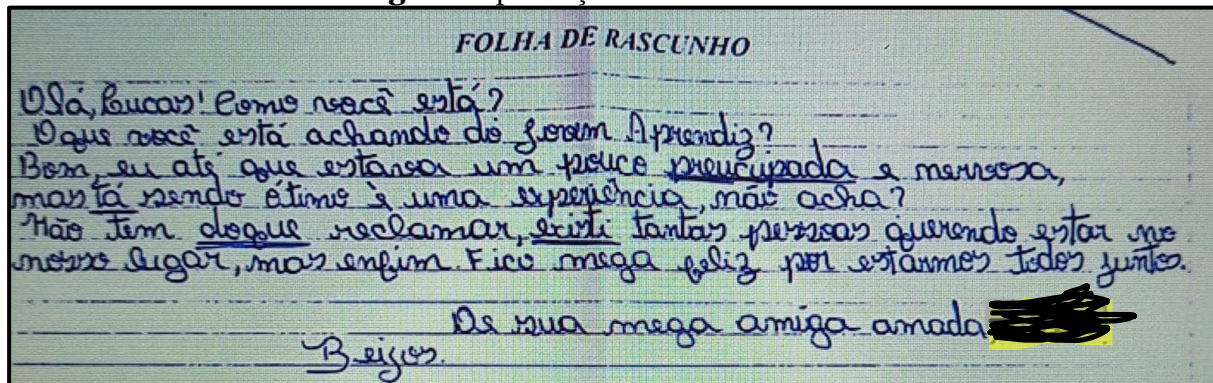 FOLHA DE RASCUNHO
Olá, Lucas! Como você está?
O que você está achando do Jovem Aprendiz?
Bom, eu até que estava um pouco preucupada e nervosa,
mas tá sendo ótimo è uma experiência, não acha?
Não tem doque reclamar, existi tantas pessoas querendo estar no
nosso lugar, mas enfim. Fico mega feliz por estarmos todos juntos.
De sua mega amiga amada
Beijos.